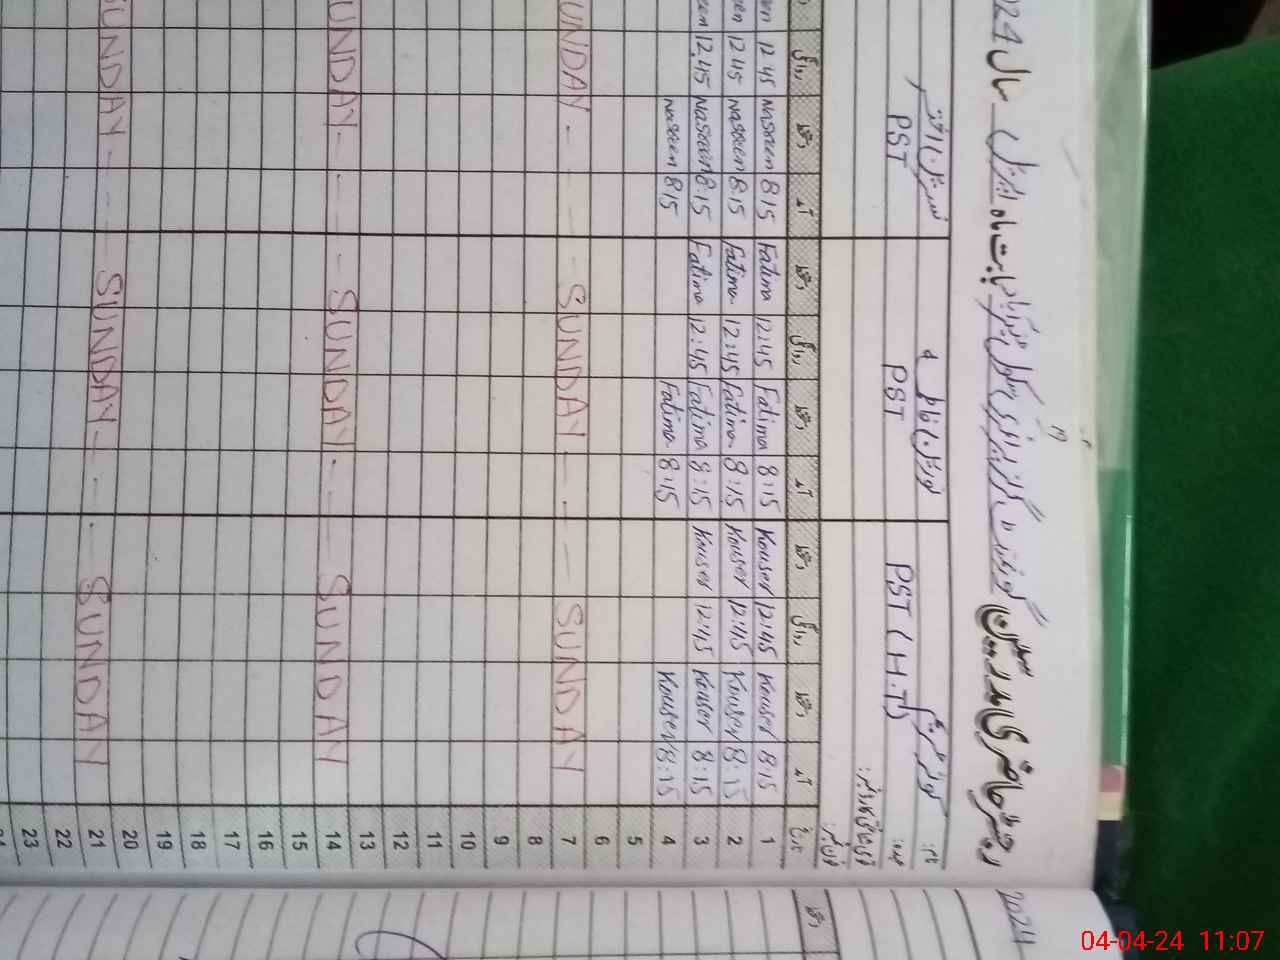 رجسٹر حاضری مدرسین گورنمنٹ گرلز پرائمری سکول بابت ماہ اپریل سال 2024
نام:
عہدہ: PST (H.T) PST PST
شناختی کارڈ نمبر:
فون نمبر:
تاریخ آمد دستخط روانگی دستخط آمد دستخط روانگی دستخط آمد دستخط روانگی
1 8:15 Kouser 12:45 Kouser 8:15 Fatima 12:45 Fatima 8:15 Nasreen 12:45
2 8:15 Kouser 12:45 Kouser 8:15 Fatima 12:45 Fatima 8:15 Nasreen 12:45
3 8:15 Kouser 12:45 Kouser 8:15 Fatima 12:45 Fatima 8:15 Nasreen 12:45
4 8:15 Kouser 8:15 Fatima 8:15 Nasreen
5
6
7 SUNDAY SUNDAY SUNDAY
8
9
10
11
12
13
14 SUNDAY SUNDAY SUNDAY
15
16
17
18
19
20
21 SUNDAY SUNDAY SUNDAY
22
23
2024
دستخط
04-04-24 11:07